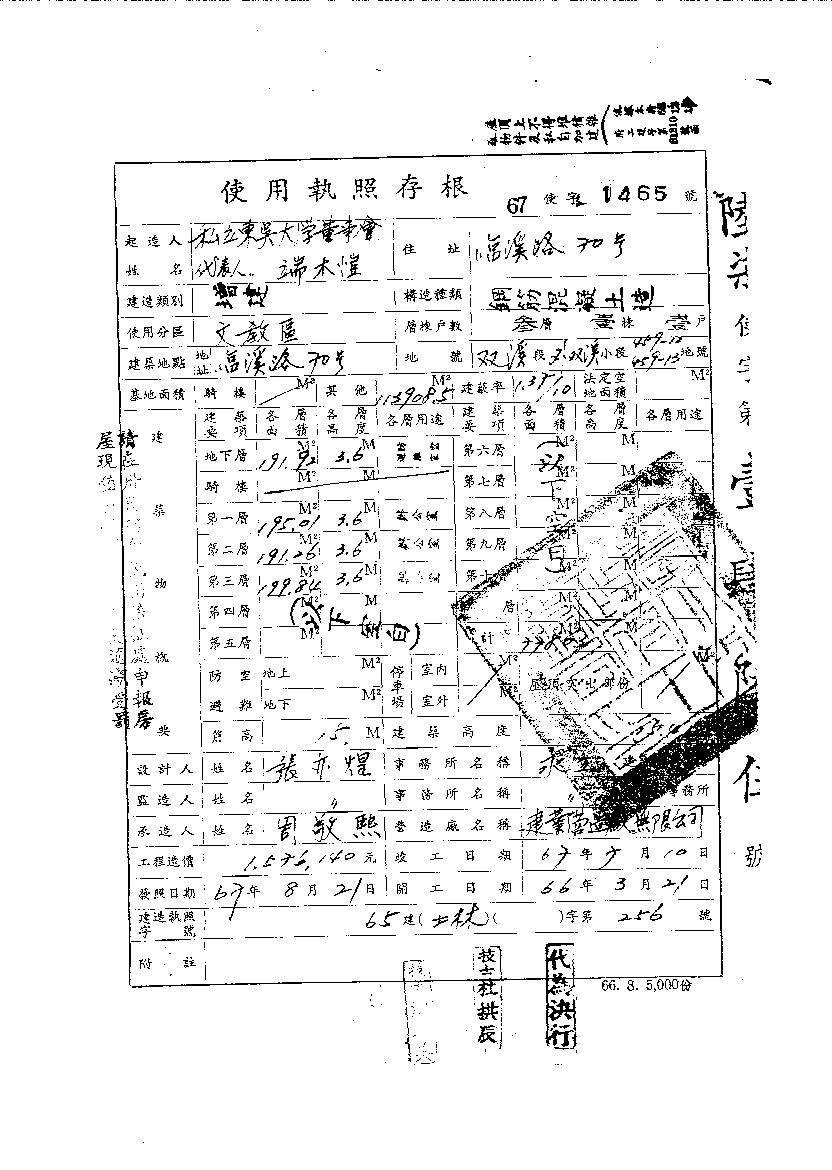 使用執照存根 67 使字 1465 號
起造人姓名 私立東吳大学董事會 代表人 端木愷 住址 臨溪路 70号
建造類別 增建 構造種類 鋼筋混凝土造
使用分區 文教區 層棟戶數 叁層 壹棟 壹戶
建築地點 地址 臨溪路70号 地號 双溪段 双溪小段 459-13地號
基地面積 騎樓 M² 其他 113908.5 M² 建蔽率 /10 法定空地面積 M²
建築要項 各層面積 各層高度 各層用途 建築要項 各層面積 各層高度 各層用途
地下層 191.92 M² 3.6 M 第六層 M² M
騎樓 M² M 第七層 M² M
第一層 195.01 M² 3.6 M 第八層 M² M
第二層 191.26 M² 3.6 M 第九層 M² M
第三層 199.84 M² 3.6 M 第十 M² M
第四層 M² M 層 M² M
第五層 M² M 計
(以下空白)
(以下空白)
防空避難 地上 M² 地下 M² 停車場 室內 M² 室外 M² 屋頂突出部份
簷高 15. M 建築高度
設計人 姓名 張亦煌 事務所名稱
監造人 姓名 〃 事務所名稱 〃 事務所
承造人 姓名 周敬熙 營造廠名稱 建業營造廠無限公司
工程造價 1,576,140元 竣工日期 67年7月10日
發照日期 67年8月21日 開工日期 66年3月21日
建造執照字號 65建(士林)( )字第 256 號
附註
66. 8. 5,000份
技士杜拱辰
代為決行
陸柒使字第壹肆陸伍號